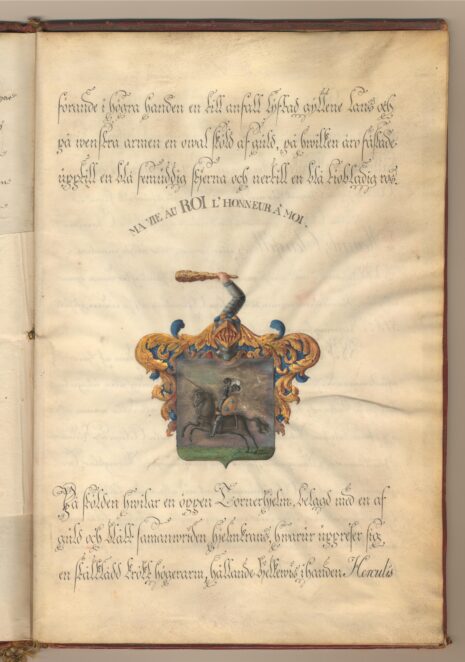 förande i högra handen en till anfall lyftad gyllene Lans och
på wenstra armen en owal sköld af guld, på hwilken äro fästade
upptill en blå femuddig stjerna och nertill en blå blad̈ig ros.
MA VIE AU ROI L'HONNEUR À MOI.
På skölden hwilar en öppen Tornerhjelm, belagd med en af
guld och blått sammanwriden hjelmkrans, hwarur uppreser sig
en stålklädd krökt högerarm, hållande hjelkewis i handen Herculis